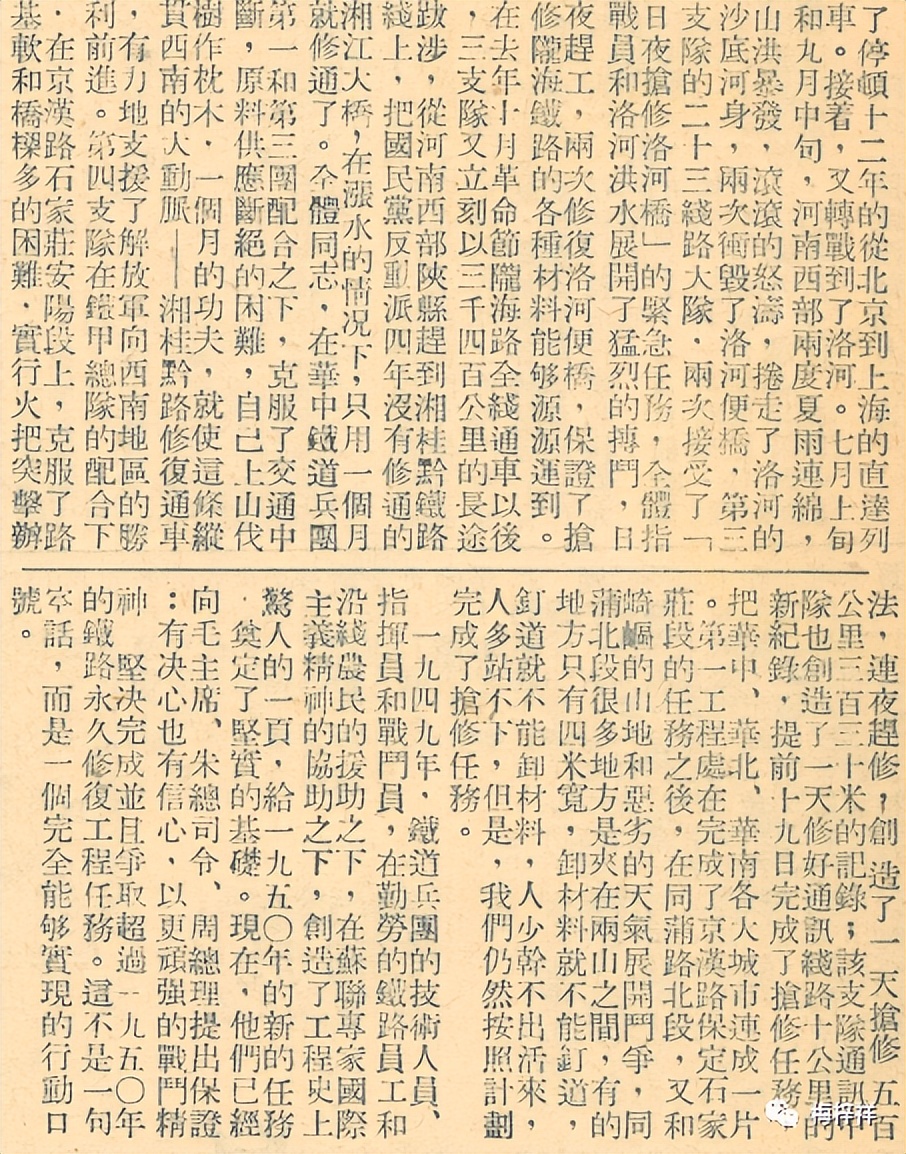 了停頓十二年的從北京到上海的直達列
車。接着，又轉戰到了洛河。七月上旬
和九月中旬，河南西部兩度夏雨連綿，
山洪暴發，滾滾的怒濤，捲走了洛河的
沙底河身，兩次衝毀了洛河便橋，第三
支隊的二十三綫路大隊．兩次接受了「
日夜搶修洛河橋」的緊急任務，全體指
戰員和洛河洪水展開了猛烈的搏鬥，日
夜趕工，兩次修復洛河便橋，保證了搶
修隴海鐵路的各種材料能够源源運到。
在去年十月革命節隴海路全綫通車以後
，三支隊又立刻以三千四百公里的長途
跋涉，從河南西部陝縣趕到湘桂黔鐵路
綫上，把國民黨反動派四年沒有修通的
湘江大橋，在漲水的情况下，只用一個月
就修通了。全體同志，在華中鐵道兵團
第一和第三團配合之下，克服了交通中
斷，原料供應斷絕的困難，自己上山伐
樹作枕木．一個月的功夫，就使這條縱
貫西南的大動脈——湘桂黔路修復通車
，有力地支援了解放軍向西南地區的勝
利前進。第四支隊在鐵甲總隊的配合下
．在京漢路石家莊安陽段上，克服了路
基軟和橋樑多的困難．實行火把突擊辦
法，連夜趕修，創造了一天搶修五百
公里三百三十米的記錄；該支隊通訊中
隊也創造了一天修好通訊綫路十公里的
新紀錄，提前十九日完成了搶修任務，
把華中、華北、華南各大城市連成一片
。第一工程處在完成了京漢路保定石家
莊段的任務之後，在同蒲路北段，又和
崎嶇的山地和惡劣的天氣展開鬥爭，同
蒲北段很多地方是夾在兩山之間，有的
地方只有四米寬，卸材料就不能釘道，
釘道就不能卸材料，人少幹不出活來，
人多站不下，但是，我們仍然按照計劃
完成了搶修任務。
一九四九年，鐵道兵團的技術人員、
指揮員和戰鬥員，在勤勞的鐵路員工和
沿綫農民的援助之下，在蘇聯專家國際
主義精神的協助之下，創造了工程史上
驚人的一頁，給一九五〇年的新的任務
，奠定了堅實的基礎。現在，他們已經
向毛主席、朱總司令、周總理提出保證
：有决心也有信心，以更頑强的戰鬥精
神，堅决完成並且爭取超過一九五〇年
的鐵路永久修復工程任務。這不是一句
空話，而是一個完全能够實現的行動口
號。
梅梓祥